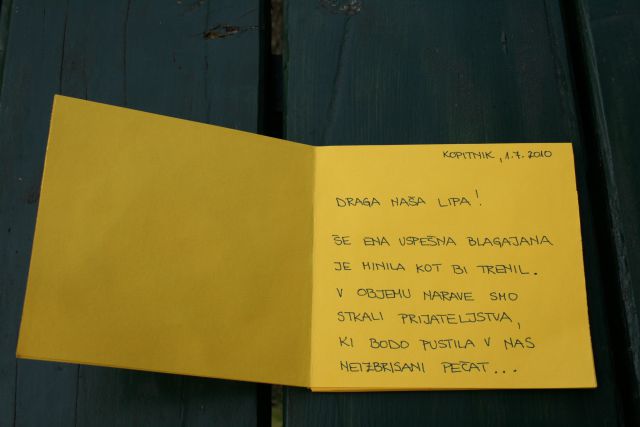 KOPITNIK, 1.7.2010
DRAGA NAŠA LIPA!
ŠE ENA USPEŠNA BLAGAJANA
JE MINILA KOT BI TRENIL.
V OBJEMU NARAVE SMO
STKALI PRIJATELJSTVA,
KI BODO PUSTILA V NAS
NEIZBRISANI PEČAT...